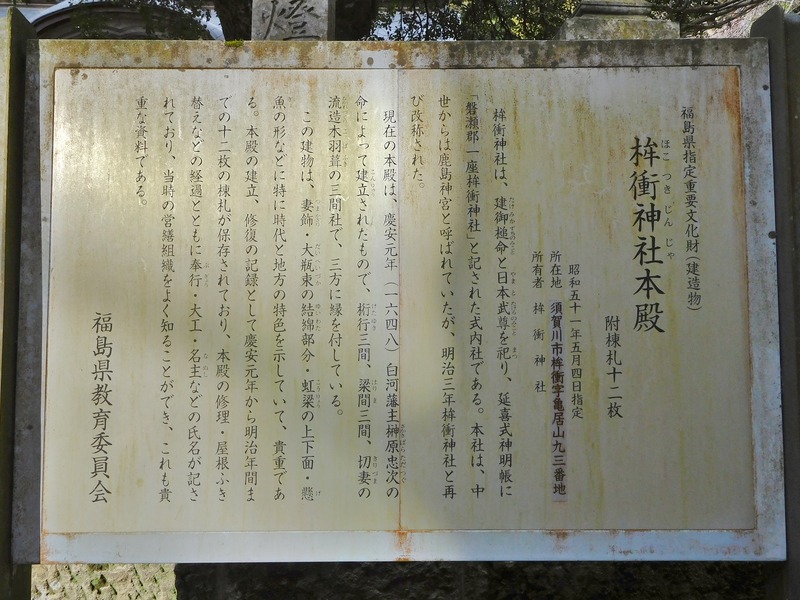 燈
福島県指定重要文化財(建造物)
桙衝神社本殿
附棟札十二枚
昭和五十一年五月四日指定
所在地 須賀川市桙衝字亀居山九三番地
所有者 桙衝神社
桙衝神社は、建御槌命と日本武尊を祀り、延喜式神明帳に
「磐瀬郡一座桙衝神社」と記された式内社である。本社は、中
世からは鹿島神宮と呼ばれていたが、明治三年桙衝神社と再
び改称された。
現在の本殿は、慶安元年(一六四八)白河藩主榊原忠次の
命によって建立されたもので、桁行三間、梁間三間、切妻の
流造木羽葺の三間社で、三方に縁を付している。
この建物は、妻飾・大瓶束の結綿部分・虹梁の上下面・懸
魚の形などに特に時代と地方の特色を示していて、貴重であ
る。本殿の建立、修復の記録として慶安元年から明治年間ま
での十二枚の棟札が保存されており、本殿の修理・屋根ふき
替えなどの経過とともに奉行・大工・名主などの氏名が記さ
れており、当時の営繕組織をよく知ることができ、これも貴
重な資料である。
福島県教育委員会